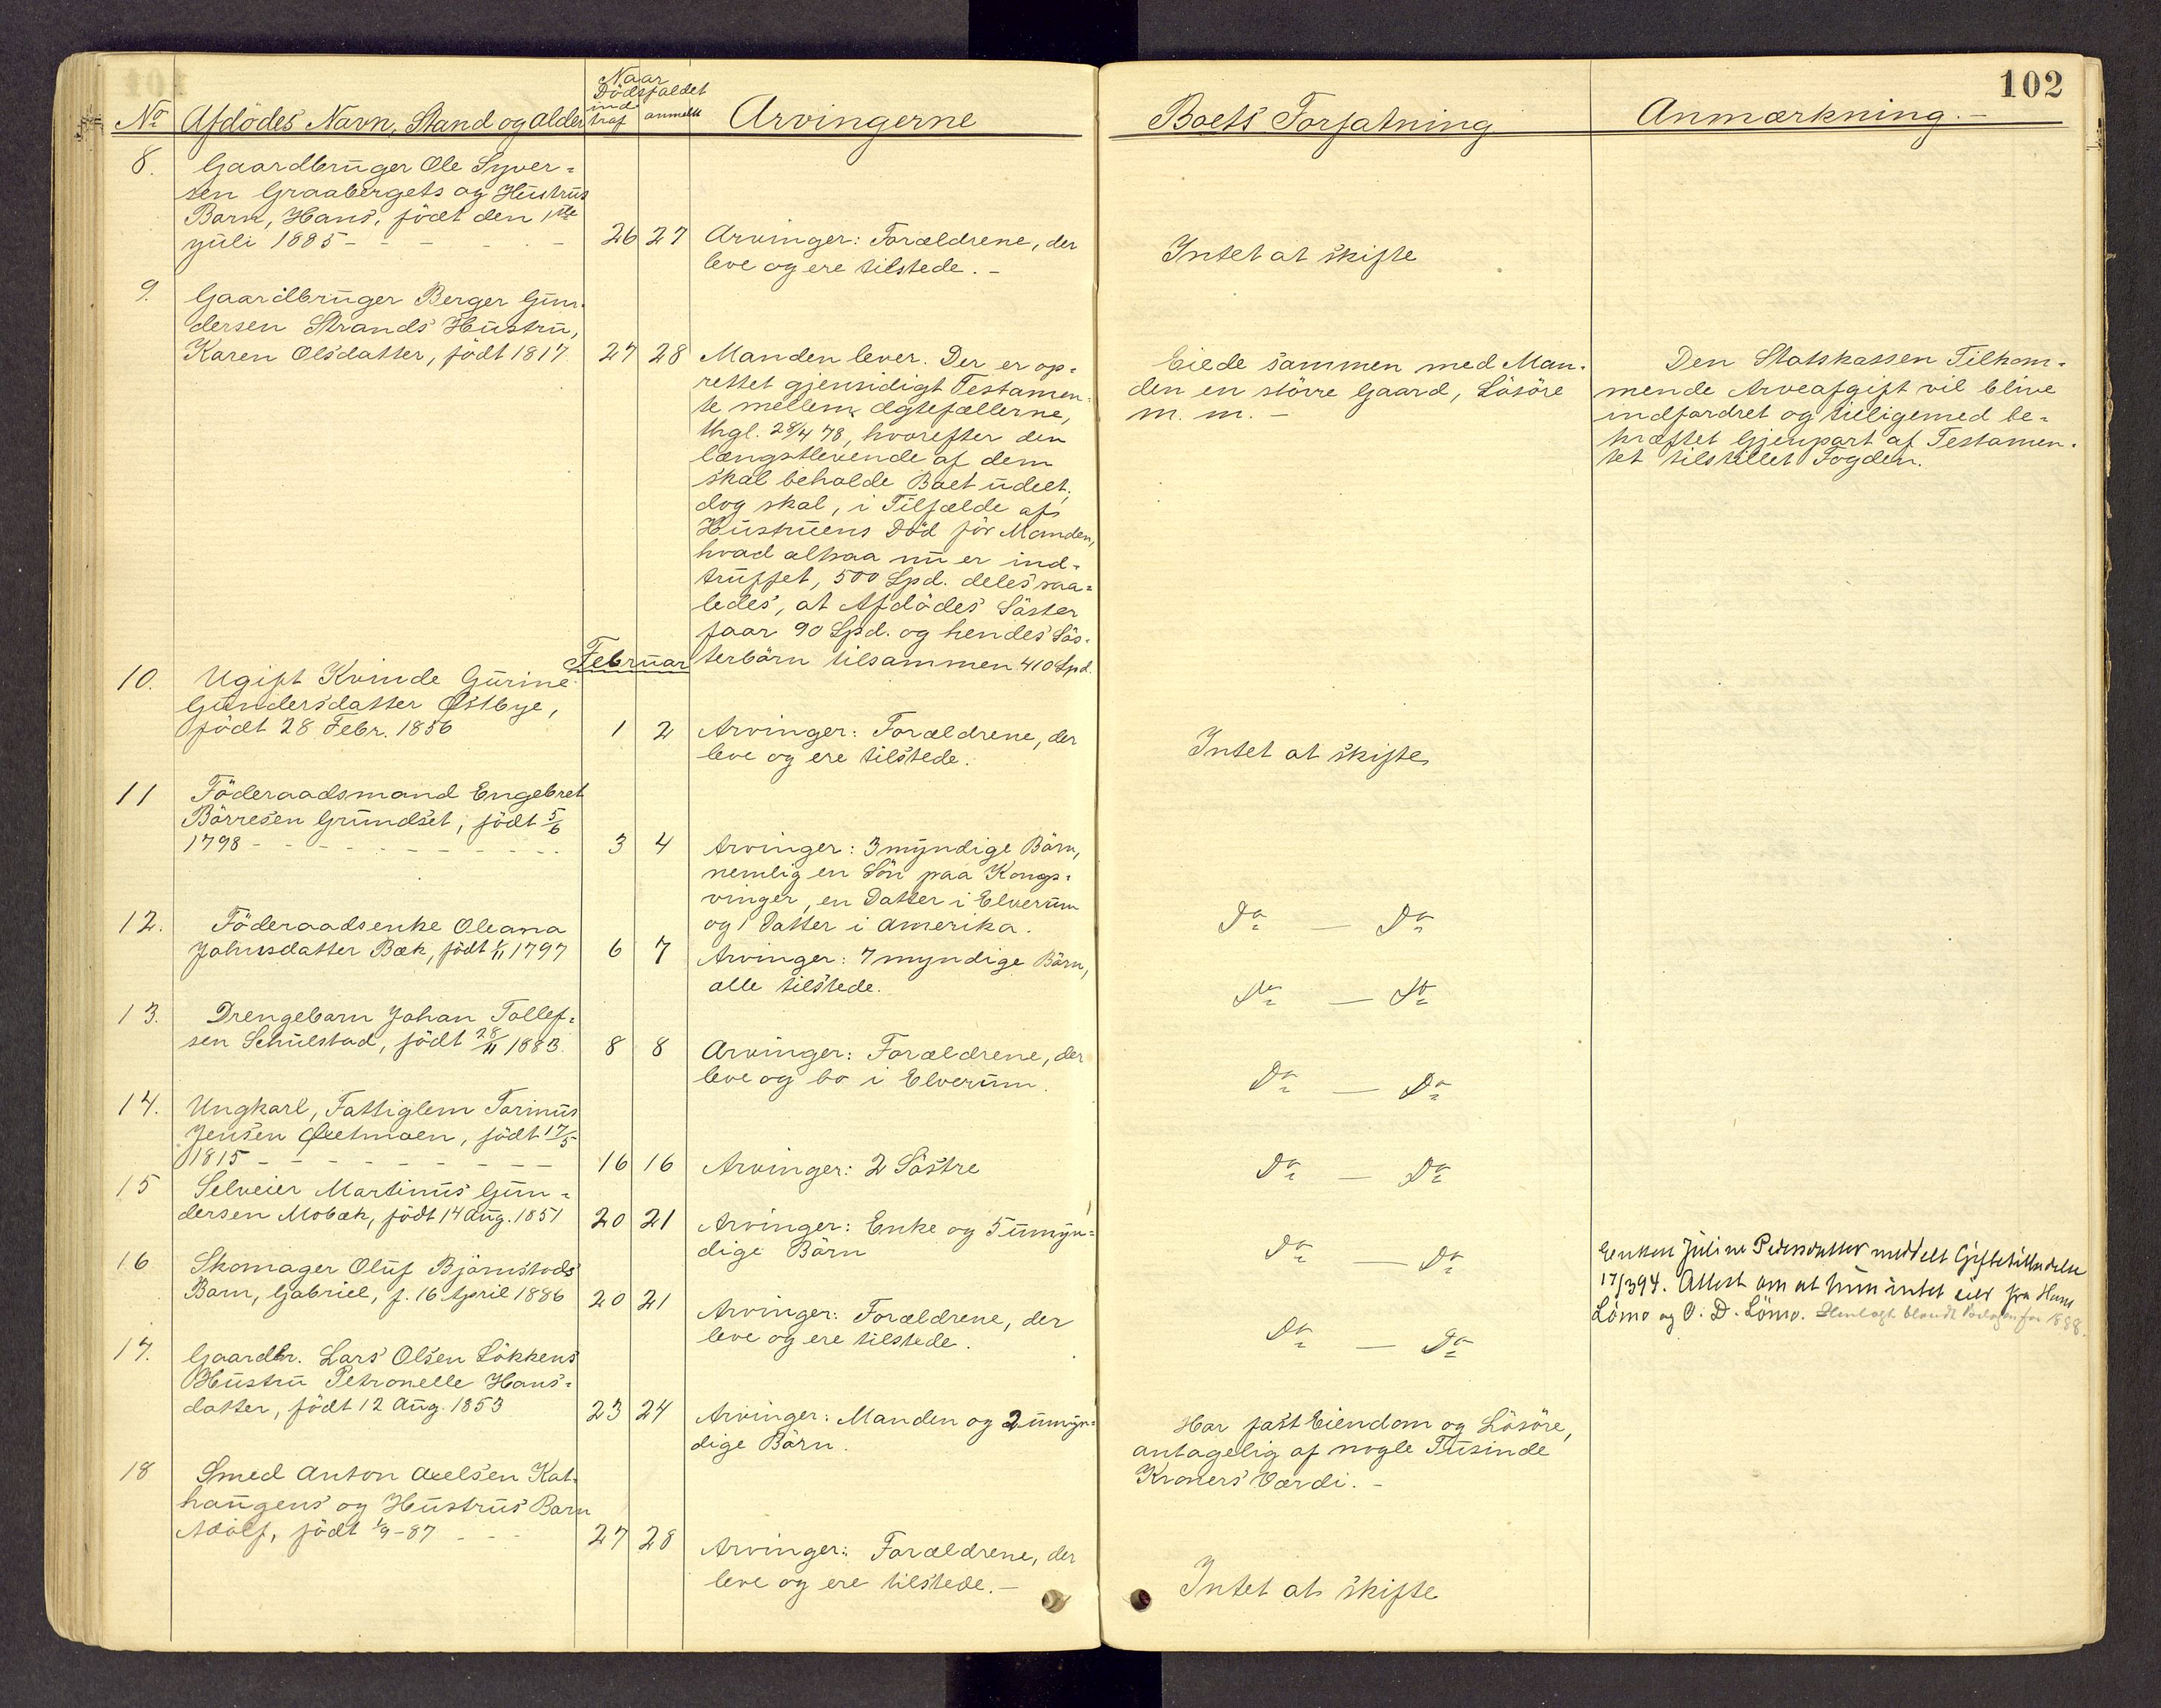 102
No Afdödes Navn, Stand og Alder Naar Dödsfaldet indtraf anmeldt Arvingerne Boets Forfatning Anmærkning.-
8. Gaardbruger Ole Syver-
sen Graabergets og Hustrus
Barn, Hans, födt den 1ste
Juli 1885 - - - - - 26 27 Arvinger: Forældrene, der
leve og ere tilstede. -
Intet at skifte
9. Gaardbruger Berger Gun-
dersen Strands Hustru,
Karen Olsdatter, födt 1817 27 28 Manden lever. Der er op-
rettet gjensidigt Testamen-
te mellem Ægtefællerne,
thgl. 28/4 78, hvorefter den
længstlevende af dem
skal beholde Boet udelt;
dog skal, i Tilfælde af
Hustruens Död för Manden,
hvad altsaa nu er ind-
truffet, 500 Spd. deles saa-
ledes, at Afdödes Söster
faar 90 Spd. og hendes Sös-
terbörn tilsammen 410 Spd.
Eiede sammen med Man-
den en större Gaard, Lösöre
m. m. -
Den Statskassen Tilkom-
mende Arveafgift vil blive
indfordret og tilligemed be-
kræftet Gjenpart af Testamen-
tet tilstillet Fogden.
Februar
10. Ugift Kvinde Gurine
Gundersdatter Østbye,
födt 28 Febr. 1856 1 2 Arvinger: Forældrene, der
leve og ere tilstede.
Intet at skifte
11 Föderaadsmand Engebret
Börresen Grundset, födt 5/6
1798 - - - - - - - - - - 3 4 Arvinger: 3 myndige Börn,
nemlig en Sön paa Kongs-
vinger, en Datter i Elverum
og 1 Datter i Amerika.
Do - Do
12. Föderaadsenke Oleana
Johnsdatter Bæk, födt 1/11 1797 6 7 Arvinger: 7 myndige Börn,
alle tilstede.
Do - Do
13. Drengebarn Johan Tollef-
sen Schulstad, födt 28/11 1883. 8 8 Arvinger: Forældrene, der
leve og bo i Elverum.
Do - Do
14. Ungkarl, Fattiglem Torinus
Jensen födt 17/5
1815 - - - - - - - - - 16 16 Arvinger: 2 Söstre
Do - Do
15 Selveier Martinus Gun-
dersen Mobæk, födt 14 Aug. 1851 20 21 Arvinger: Enke og 5 umyn-
dige Börn
Do - Do
Enken Juline Pedersdatter meddelt Giftetilladelse
17/3 94. Attest om at hun intet eier fra Hans
Lömo og O. D. Lömo. Henlagt blandt for 1888.
16 Skomager Oluf Björnstads
Barn, Gabriel, f. 16 April 1886 20 21 Arvinger: Forældrene, der
leve og ere tilstede.
Do - Do
17. Gaardbr. Lars Olsen Lökkens
Hustru Petronelle Hans-
datter, födt 12 Aug. 1853 23 24 Arvinger: Manden og 2 umyn-
dige Börn.
Har fast Eiendom og Lösöre,
antagelig af nogle Tusinde
Kroners Værdi. -
18 Smed Anton Axelsen Kat-
haugens og Hustrus Barn
Adolf, födt 1/9-87 - - - 27 28 Arvinger: Forældrene, der
leve og ere tilstede. -
Intet at skifte